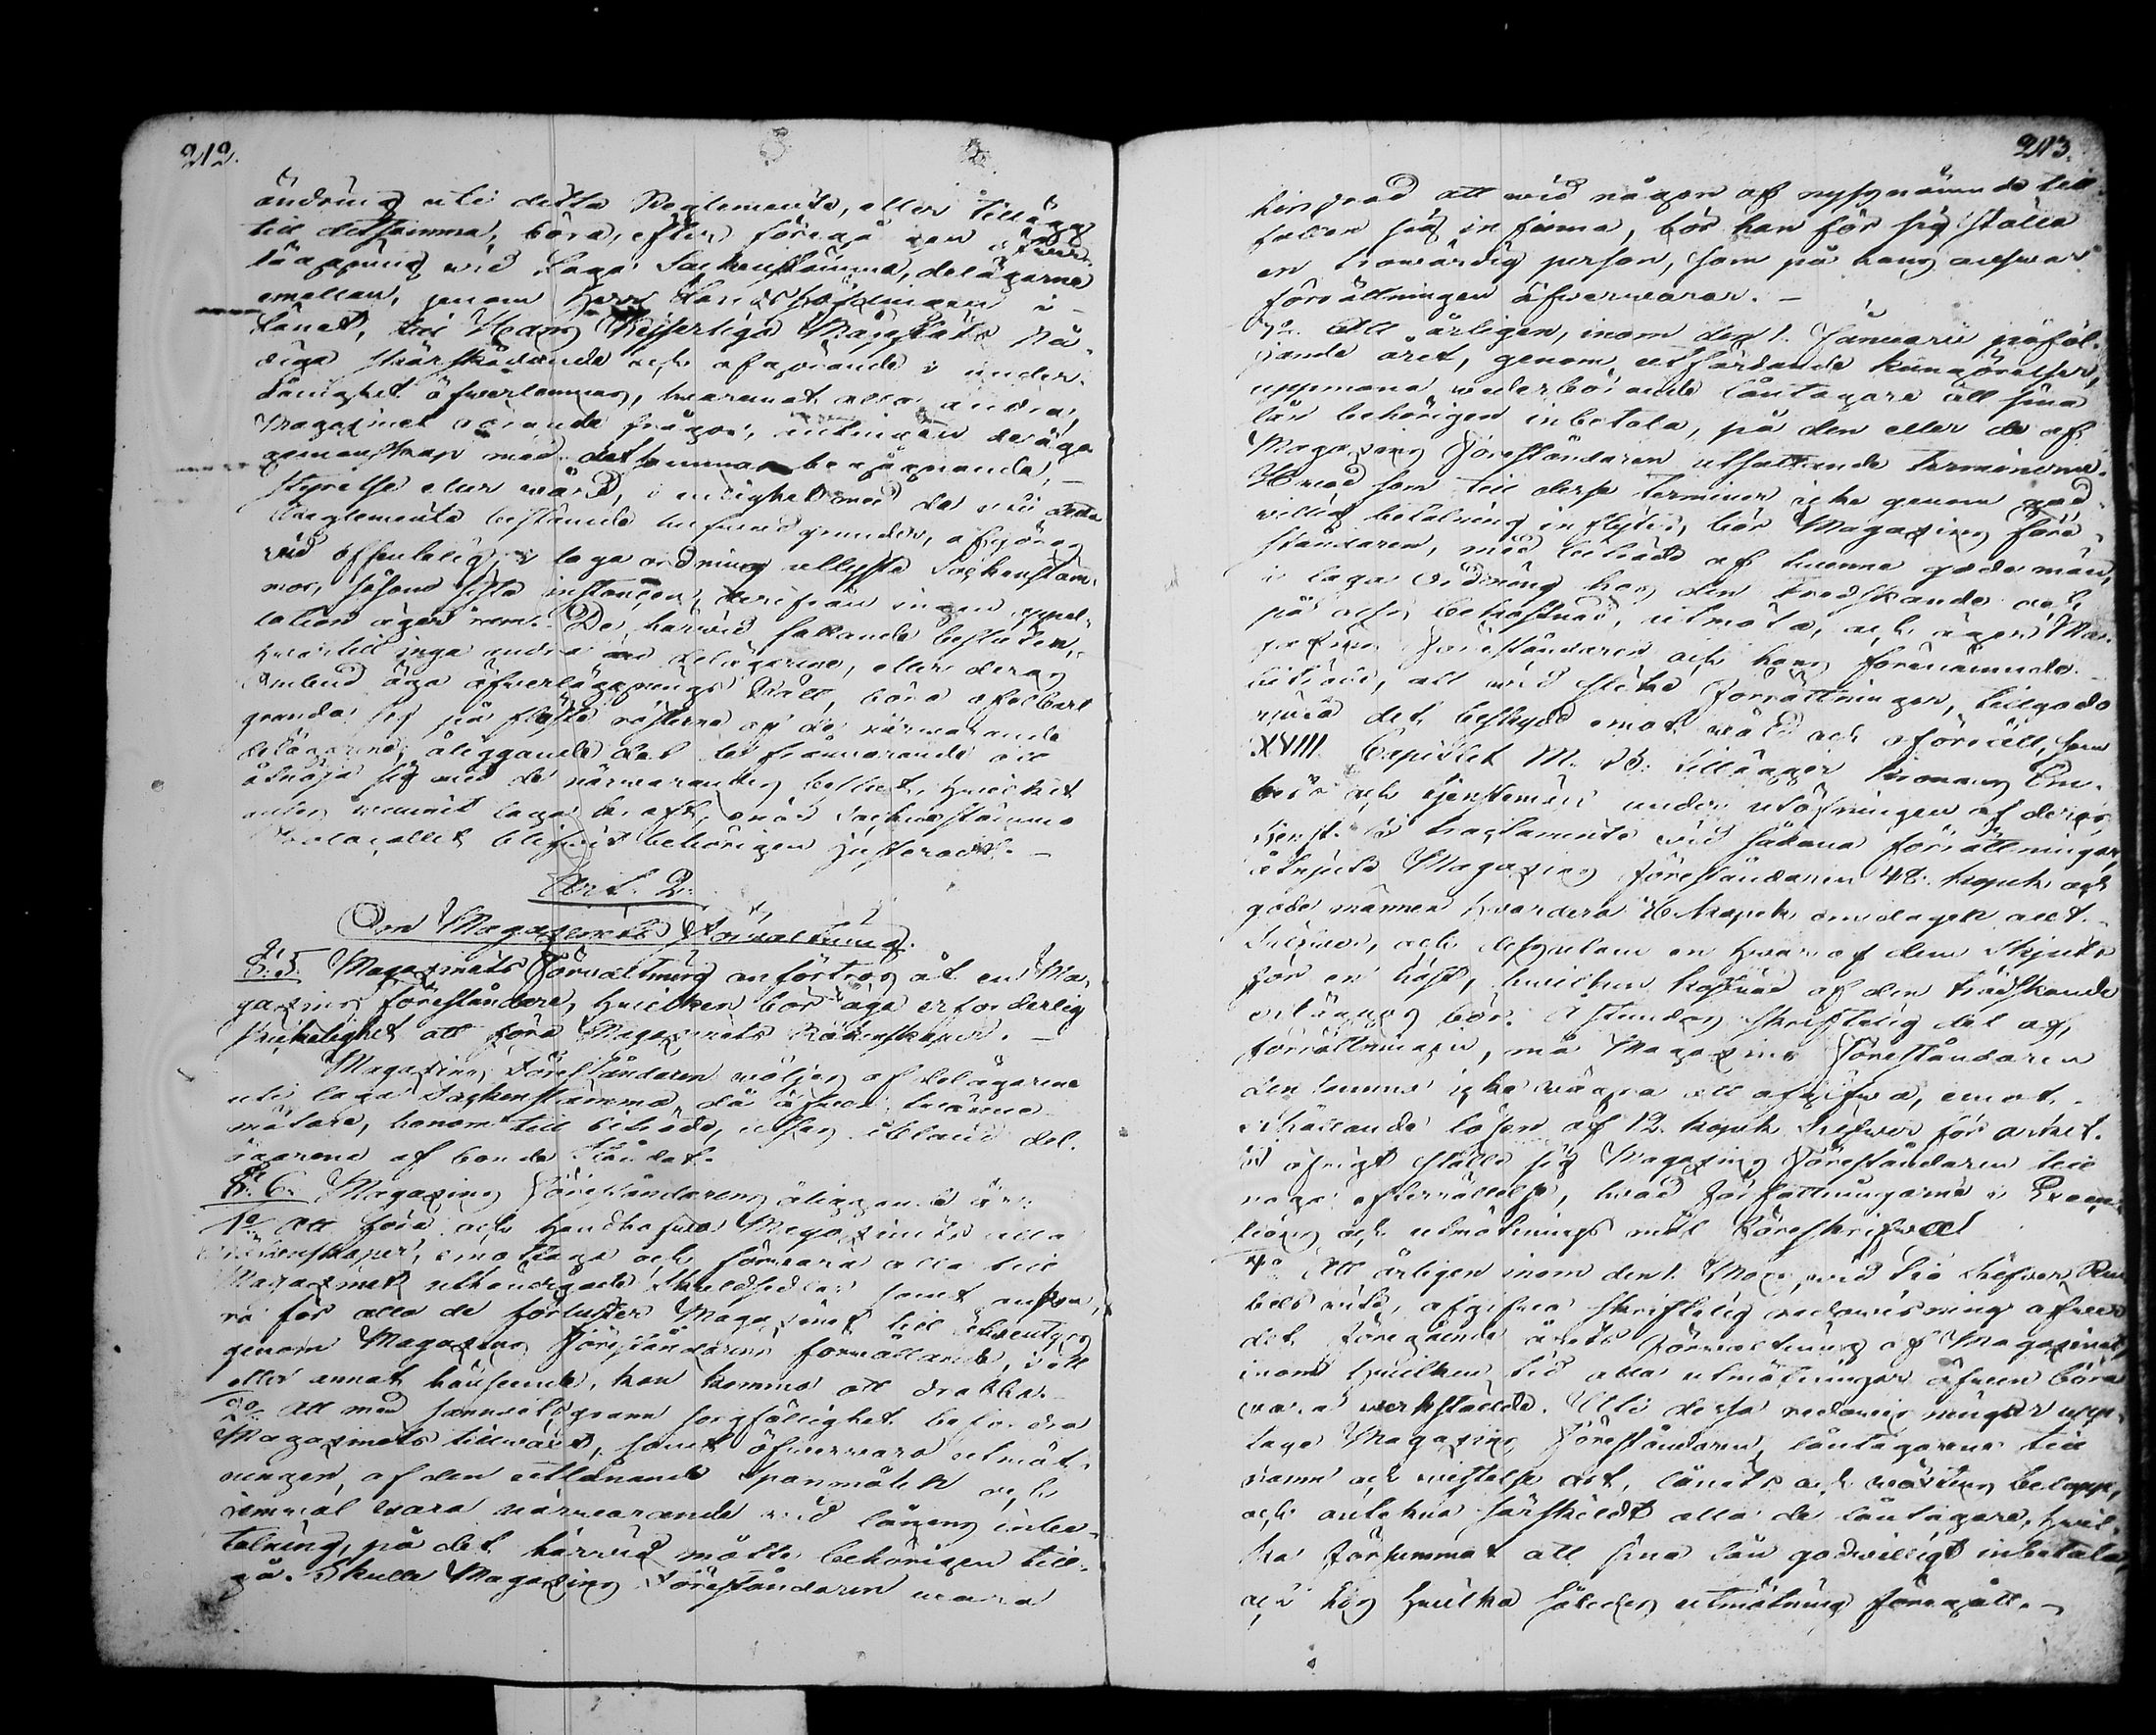 212.
ändring uti detta Reglemente, eller tillägg
till detsamma, böra, efter föregången öfver-
läggning vid Laga Sockenstämma, delägarne
emellan, genom Herr Landshöfdingen i
Länet, till Hans Kejserliga Majestäts Nå-
diga skärskådande och afgörande i under-
dånighet öfverlemnas, hvaremot alla andra,
Magazinet rörande frågor,
med detsamma begagnande,
styrelse eller vård, i enlighet med de uti detta
Reglemente bestämde hufvudgrunder, afgöras
vid offentelig, i laga ordning utlyste Sockenstäm-
mor, såsom sista instancen, derifrån ingen appel-
lation äger rum. De härvid fattande besluten,
hvartill inga andra än delägarene, eller deras
Ombud äga öfverläggnings Rätt, böra ofelbart
grunda sig på flesta rösterna af de närvarande
delägarene, åliggande det de frånvarande att
åtnöja sig med de närvarandes beslut, hvilket
anses vunnit laga kraft, enär Sockenstämmo
Protocollet blifvit behörigen justeradt.
Art. 2.
Om Magazinets Förvaltning.
§. 5. Magazinets Förvaltning anförtros åt en Ma-
gazins föreståndare, hvilken bör äga erforderlig
skickelighet att föra Magazinets Räkenskaper.
Magazins Föreståndaren väljes af delägarene
uti laga Sockenstämma, då äfven tvänne
mätare, honom till biträde, utses ibland del-
ägarene af bonde Ståndet.
§. 6. Magazins Föreståndarens åliggande är:
1o Att föra och handhafva Magazinets alla
Räkenskaper, emottaga och förvara alla till
Magazinet utkändigade Skuldsedlar samt ansva-
ra för alla de förluster Magazinet till äfventyrs
genom Magazins Föreståndarens förvållande, i ett
eller annat hänseende, kan komma att drabbas.
2o Att med samvetsgrann sorgfällighet befordra
Magazinets tillväxt, samt öfvervara utmät-
ningen, af den utlånande Spannmålen och
jemväl vara närvarande vid lånens inbe-
talning, på det härvid måtte behörigen till-
gå. Skulle Magazins Föreståndaren vara
213.
hindrad att vid någon af nyssnämnde till-
fällen sig infinna, bör han för sig ställa
en trovärdig person, som på hans ansvar
förrättningen öfvervarar.
3o Att årligen, inom den 1. Januarii påföl-
jande året, genom utfärdande kungörelser,
uppmana vederbörande låntagare att sina
lån behörigen inbetala, på den eller de af
Magazins Föreståndaren utsättande terminerne.
Hvad som till desse terminer icke genom god-
villig betalning inflyter, bör Magazins Före-
ståndaren, med biträde af tvenne gode män,
i laga Ordning hos den tredskande och
på dess bekostnad, utmäta, och äger Ma-
gazins Föreståndaren och hans förenämnde
biträde, att vid slike Förrättningar, tillgodo
njuta det beskydd emot våld och oförrätt, som
XVIII. Capitlet M. B: tillägger Kronans Em-
bets och tjenstemän under utöfningen af deras
tjenst. I tractamente vid sådana förrättningar,
åtnjute Magazins Föreståndaren 48. kopek och
gode männen hvardera kopek om dagen allt
Silfver, och dessutom en hvar af dem Skjuts
för en häst, hvilken kostnad af den tredskande
erläggas bör. Åstundas skriftelig del af
förrättningen, må Magazins Föreståndaren
den samma icke vägra att afgifva, emot
erhållande lösen af 12. kopek Silfver för arket.
I öfrigt ställe sig Magazins Föreståndaren till
noga efterrättelse, hvad Författningarne i Execu-
tions och utmätnings mål Föreskrifva.
4o Att årligen inom den 1. Maji, vid Tio Silfver Ru-
bels vite, afgifva skriftelig redovisning öfver
det föregående årets Förvaltning af Magazinet,
inom hvilken tid alla utmätningar äfven böra
vara verkställde. Uti dessa redovisningar upp-
tage Magazins Föreståndaren låntagarene till
namn och vistelse ort, lånets och växtens belopp,
och antekna särskildt alla de låntagare, hvil-
ka försummat att sina lån godvilligt inbetala,
och hos hvilka således utmätning föregått.